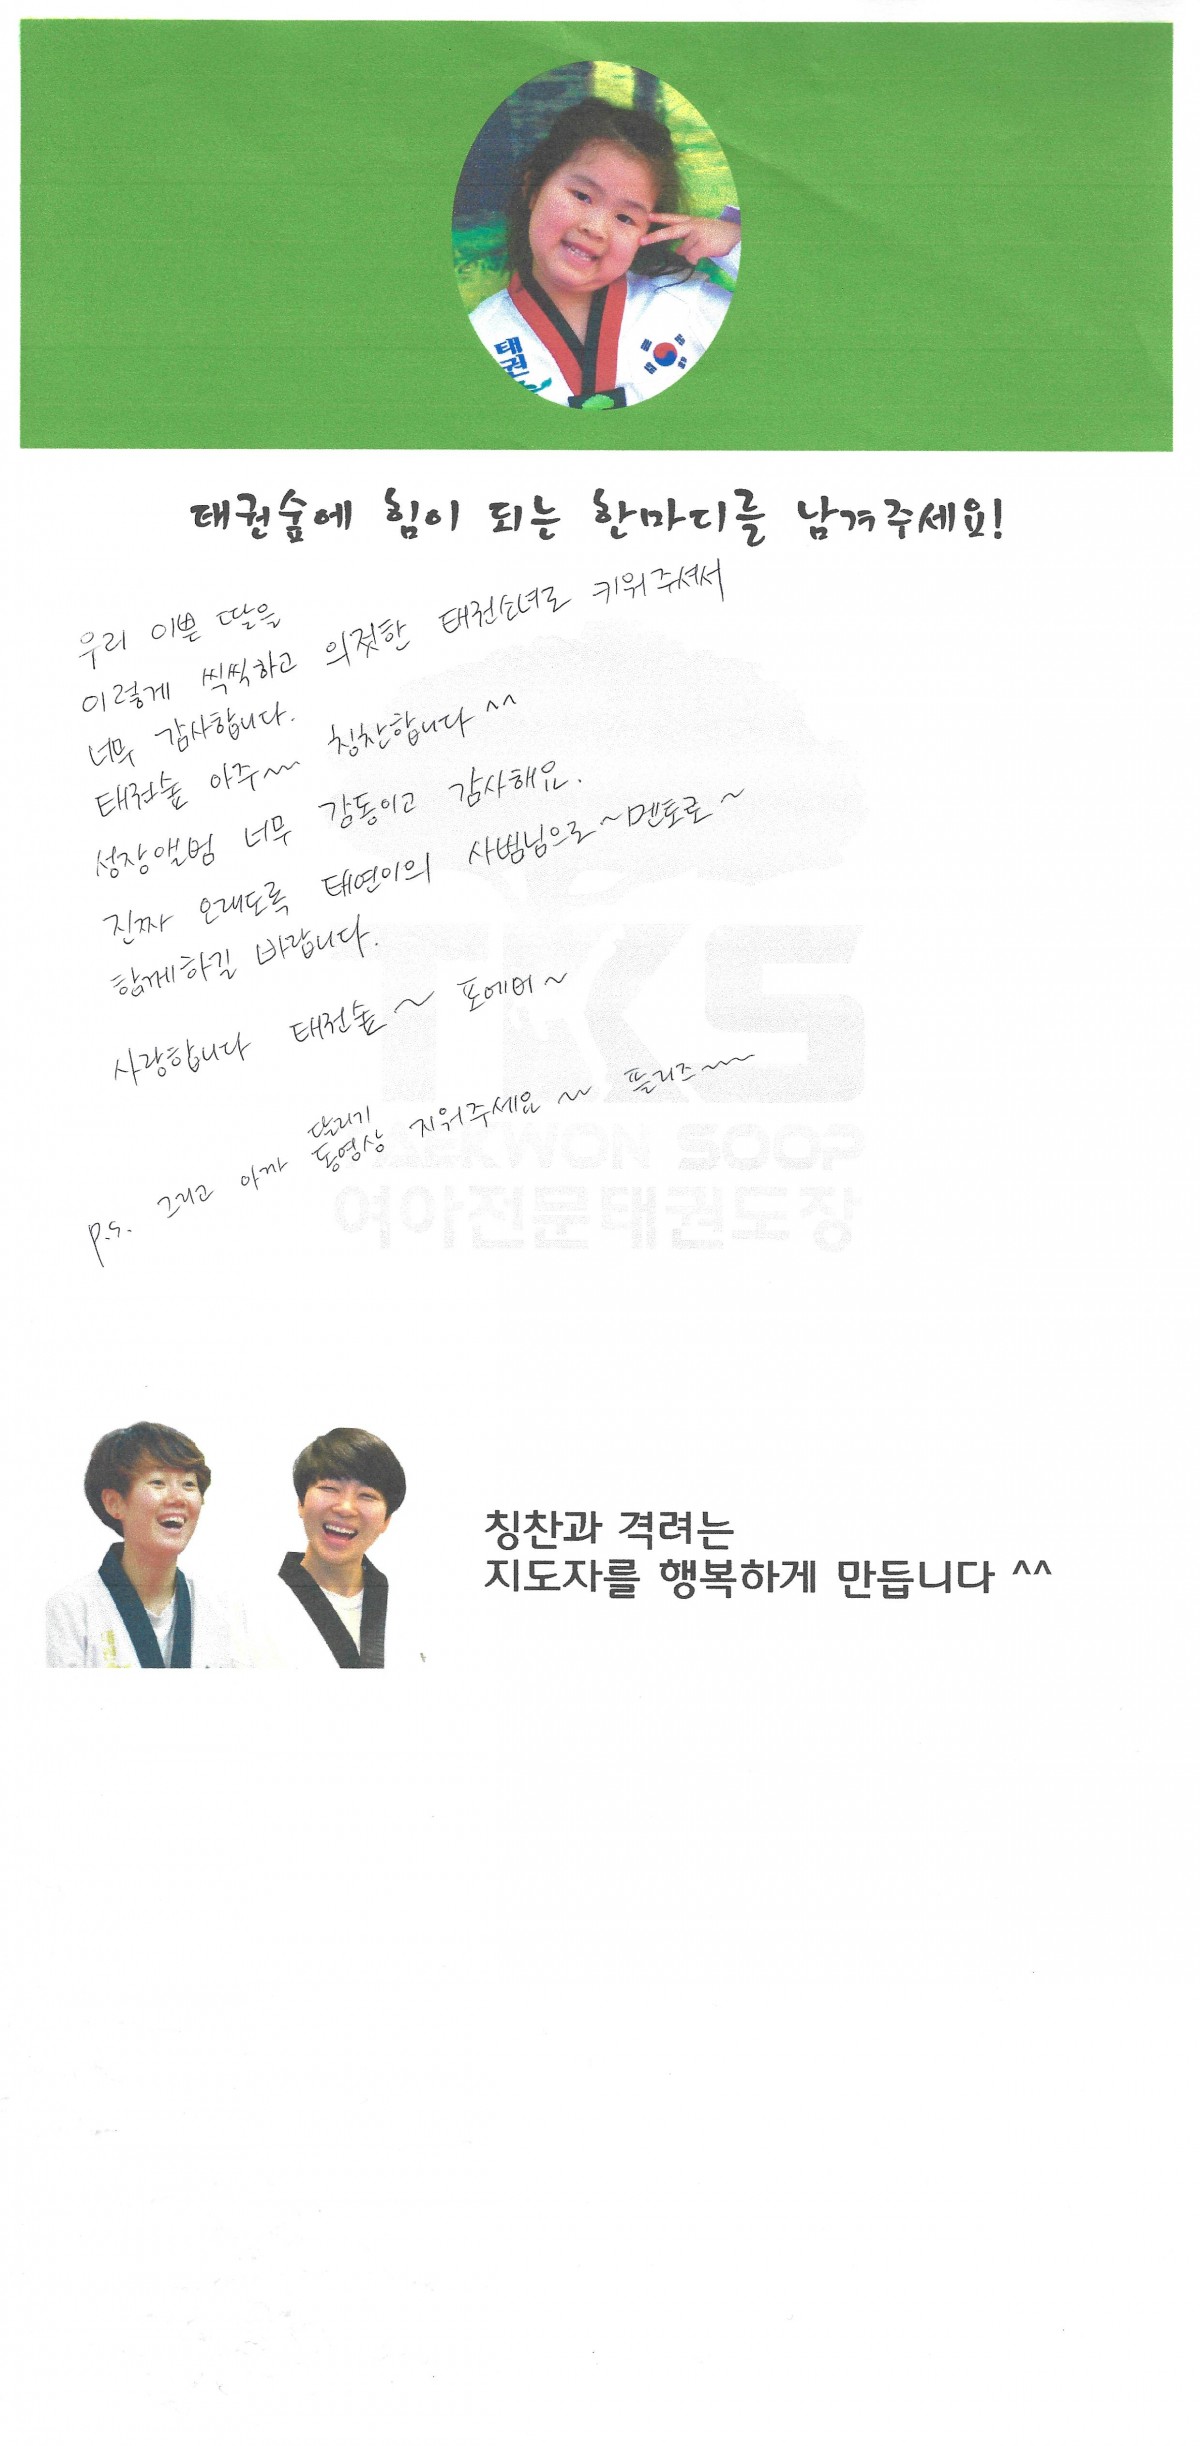 태권
태권숲에 힘이 되는 한마디를 남겨주세요!
우리 이쁜 딸을
이렇게 씩씩하고 의젓한 태권소녀로 키워주셔서
너무 감사합니다.
태권숲 아주~~ 칭찬합니다 ^^
성장앨범 너무 감동이고 감사해요.
진짜 오래도록 태연이의 사범님으로~멘토로~
함께하길 바랍니다.
사랑합니다 태권숲~ 포에버~
p.s. 그리고 아까 달리기 동영상 지워주세요~~ 플리즈~~~
TKS
TAEKWON SOOP
여아전문태권도장
칭찬과 격려는
지도자를 행복하게 만듭니다 ^^